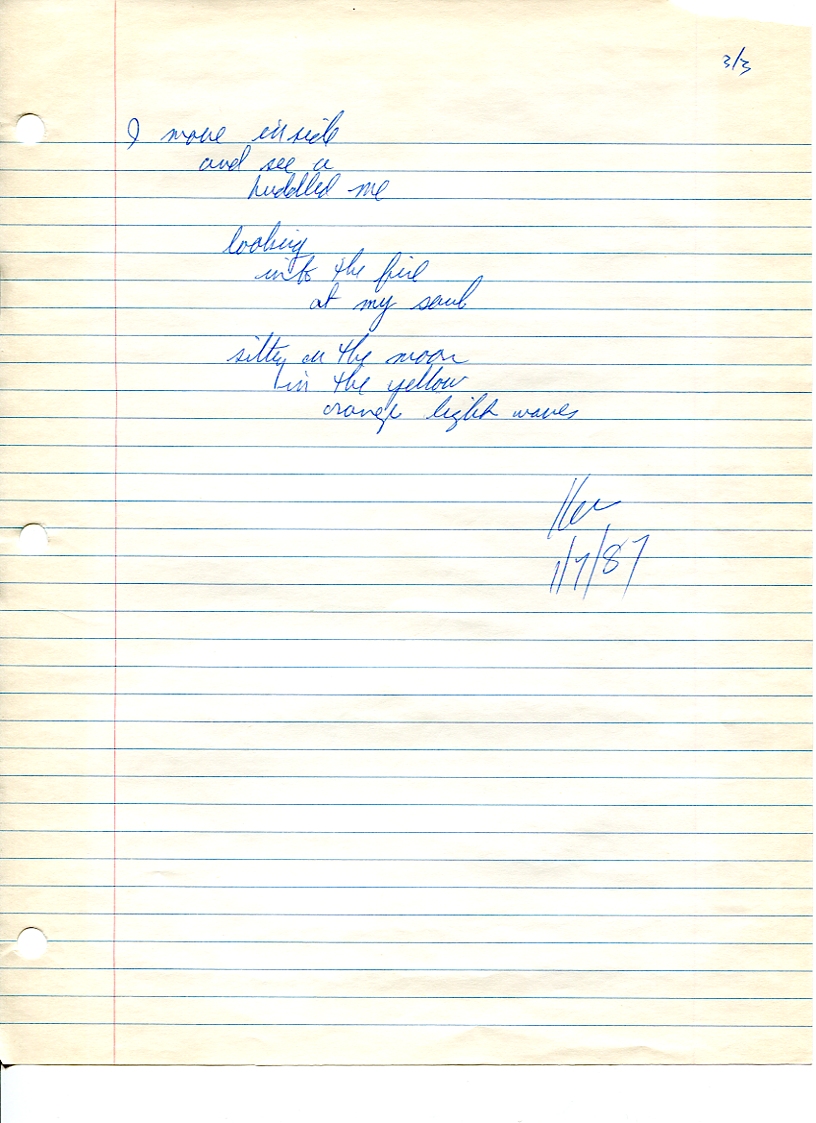 3/3
I move inside
and see a
huddled me
looking
into the fire
at my soul
sitting on the moon
in the yellow
orange light waves
1/7/87